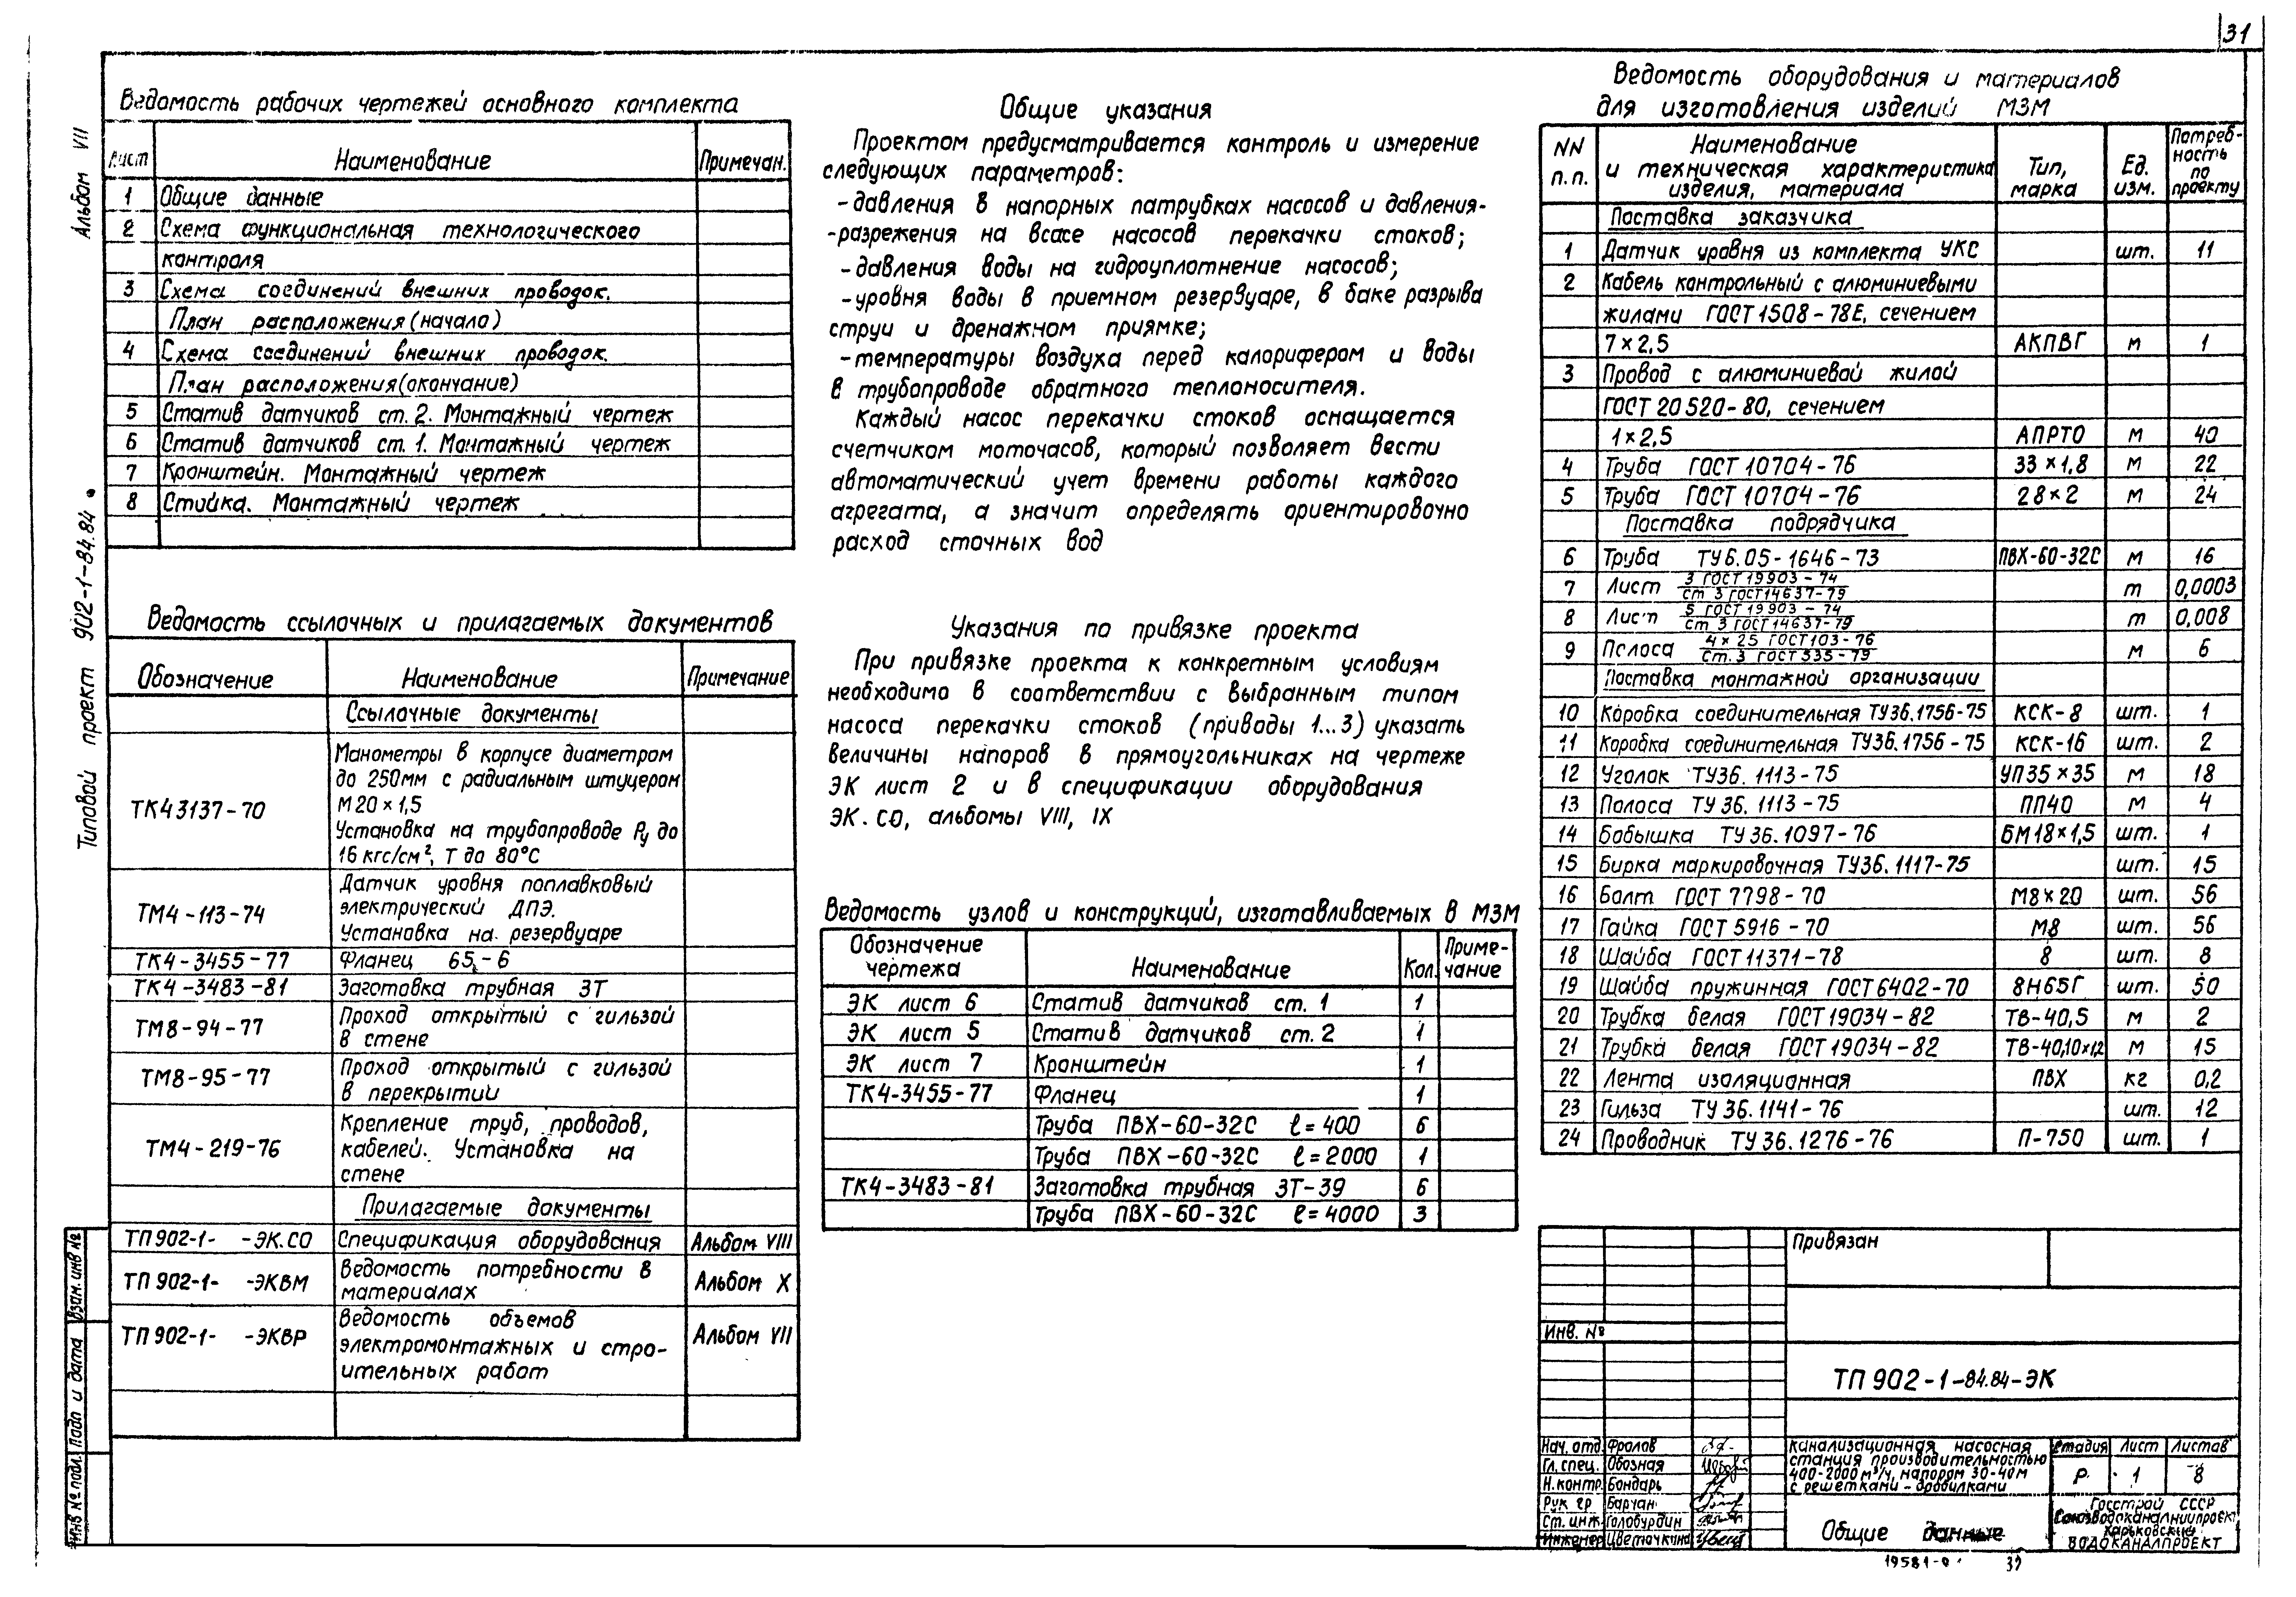 31
Альбом VII
Типовой проект 902-1-84.84
Ведомость рабочих чертежей основного комплекта
Лист Наименование Примечан.
1 Общие данные
2 Схема функциональная технологического
контроля
3 Схема соединений внешних проводок.
План расположения (начало)
4 Схема соединений внешних проводок.
План расположения (окончание)
5 Статив датчиков ст. 2. Монтажный чертеж
6 Статив датчиков ст. 1. Монтажный чертеж
7 Кронштейн. Монтажный чертеж
8 Стойка. Монтажный чертеж
Ведомость ссылочных и прилагаемых документов
Обозначение Наименование Примечание
Ссылочные документы
ТК4 3137-70 Манометры в корпусе диаметром
до 250мм с радиальным штуцером
М 20 × 1,5
Установка на трубопроводе Ру до
16 кгс/см², Т до 80°С
ТМ4-113-74 Датчик уровня поплавковый
электрический ДПЭ.
Установка на резервуаре
ТК4-3455-77 Фланец 65-6
ТК4-3483-81 Заготовка трубная ЗТ
ТМ8-94-77 Проход открытый с гильзой
в стене
ТМ8-95-77 Проход открытый с гильзой
в перекрытии
ТМ4-219-76 Крепление труб, проводов,
кабелей. Установка на
стене
Прилагаемые документы
ТП 902-1- -ЭК.СО Спецификация оборудования Альбом VIII
ТП 902-1- -ЭКВМ Ведомость потребности в
материалах Альбом X
ТП 902-1- -ЭКВР Ведомость объемов
электромонтажных и стро-
ительных работ Альбом VII
Общие указания
Проектом предусматривается контроль и измерение
следующих параметров:
- давления в напорных патрубках насосов и давления-
-разрежения на всасе насосов перекачки стоков;
- давления воды на гидроуплотнение насосов;
- уровня воды в приемном резервуаре, в баке разрыва
струи и дренажном приямке;
- температуры воздуха перед калорифером и воды
в трубопроводе обратного теплоносителя.
Каждый насос перекачки стоков оснащается
счетчиком моточасов, который позволяет вести
автоматический учет времени работы каждого
агрегата, а значит определять ориентировочно
расход сточных вод
Указания по привязке проекта
При привязке проекта к конкретным условиям
необходимо в соответствии с выбранным типом
насоса перекачки стоков (приводы 1...3) указать
величины напоров в прямоугольниках на чертеже
ЭК лист 2 и в спецификации оборудования
ЭК.СО, альбомы VIII, IX
Ведомость узлов и конструкций, изготавливаемых в МЗМ
Обозначение чертежа Наименование Кол. Приме-
чание
ЭК лист 6 Статив датчиков ст. 1 1
ЭК лист 5 Статив датчиков ст. 2 1
ЭК лист 7 Кронштейн 1
ТК4-3455-77 Фланец 1
Труба ПВХ-60-32С ℓ=400 6
Труба ПВХ-60-32С ℓ=2000 1
ТК4-3483-81 Заготовка трубная ЗТ-39 6
Труба ПВХ-60-32С ℓ=4000 3
Ведомость оборудования и материалов
для изготовления изделий МЗМ
NN п.п. Наименование
и техническая характеристика
изделия, материала Тип, марка Ед. изм. Потреб-
ность по проекту
Поставка заказчика
1 Датчик уровня из комплекта УКС шт. 11
2 Кабель контрольный с алюминиевыми
жилами ГОСТ 1508-78Е, сечением
7 × 2,5 АКПВГ м 1
3 Провод с алюминиевой жилой
ГОСТ 20520-80, сечением
1 × 2,5 АПРТО м 40
4 Труба ГОСТ 10704-76 33 × 1,8 м 22
5 Труба ГОСТ 10704-76 28 × 2 м 24
Поставка подрядчика
6 Труба ТУ6.05-1646-73 ПВХ-60-32С м 16
7 Лист 3 ГОСТ 19903-74
ст 3 ГОСТ 14637-79 т 0,0003
8 Лист 5 ГОСТ 19903-74
ст 3 ГОСТ 14637-79 т 0,008
9 Полоса 4 × 25 ГОСТ 103-76
Ст. 3 ГОСТ 535-79 м 6
Поставка монтажной организации
10 Коробка соединительная ТУ36.1756-75 КСК-8 шт. 1
11 Коробка соединительная ТУ36.1756-75 КСК-16 шт. 2
12 Уголок ТУ36.1113-75 УП35 × 35 м 18
13 Полоса ТУ 36.1113-75 ПП40 м 4
14 Бобышка ТУ 36.1097-76 БМ18×1,5 шт. 1
15 Бирка маркировочная ТУ36.1117-75 шт. 15
16 Болт ГОСТ 7798-70 М8×20 шт. 56
17 Гайка ГОСТ 5916-70 М8 шт. 56
18 Шайба ГОСТ 11371-78 8 шт. 8
19 Шайба пружинная ГОСТ 6402-70 8Н65Г шт. 50
20 Трубка белая ГОСТ 19034-82 ТВ-40,5 м 2
21 Трубка белая ГОСТ 19034-82 ТВ-40,10×1,2 м 15
22 Лента изоляционная ПВХ кг 0,2
23 Гильза ТУ 36.1141-76 шт. 12
24 Проводник ТУ 36.1276-76 П-750 шт. 1
Привязан
Инв. №
ТП 902-1-84.84-ЭК
Нач. отд. Фролов
Гл. спец. Обозная
Н. контр. Бондарь
Рук гр Барчан
Ст. инж. Голобурдин
Инженер Цветочкина
Канализационная насосная
станция производительностью
400-2000 м³/ч, напором 30-40м
с решетками-дробилками
Стадия Лист Листов
Р 1 8
Общие данные
Госстрой СССР
Союзводоканалниипроект
Харьковский
ВОДОКАНАЛПРОЕКТ
Взам. инв №
Подп и дата
Инв № подл.